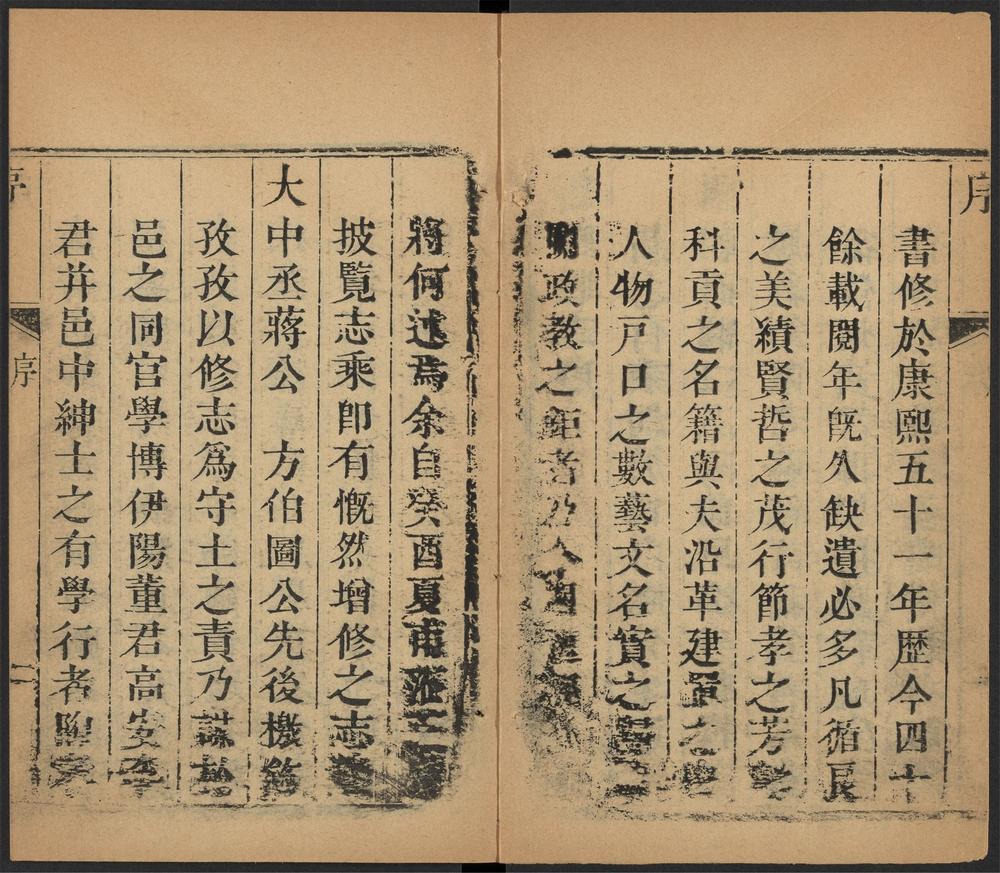 序
書修於康熙五十一年歴今四十
餘載閱年旣久缺遺必多凡循良
之美績賢哲之茂行節孝之芳
科貢之名籍與夫沿革建置之
人物戸口之數藝文名實之
政教之鉅者乃人
將何述焉余自癸酉夏甫
披覽志乘卽有慨然增修之志
大中丞蔣公 方伯圖公先後檄
孜孜以修志爲守土之責乃謀
邑之同官學博伊陽董君高安李
君并邑中紳士之有學行者
序
二
序